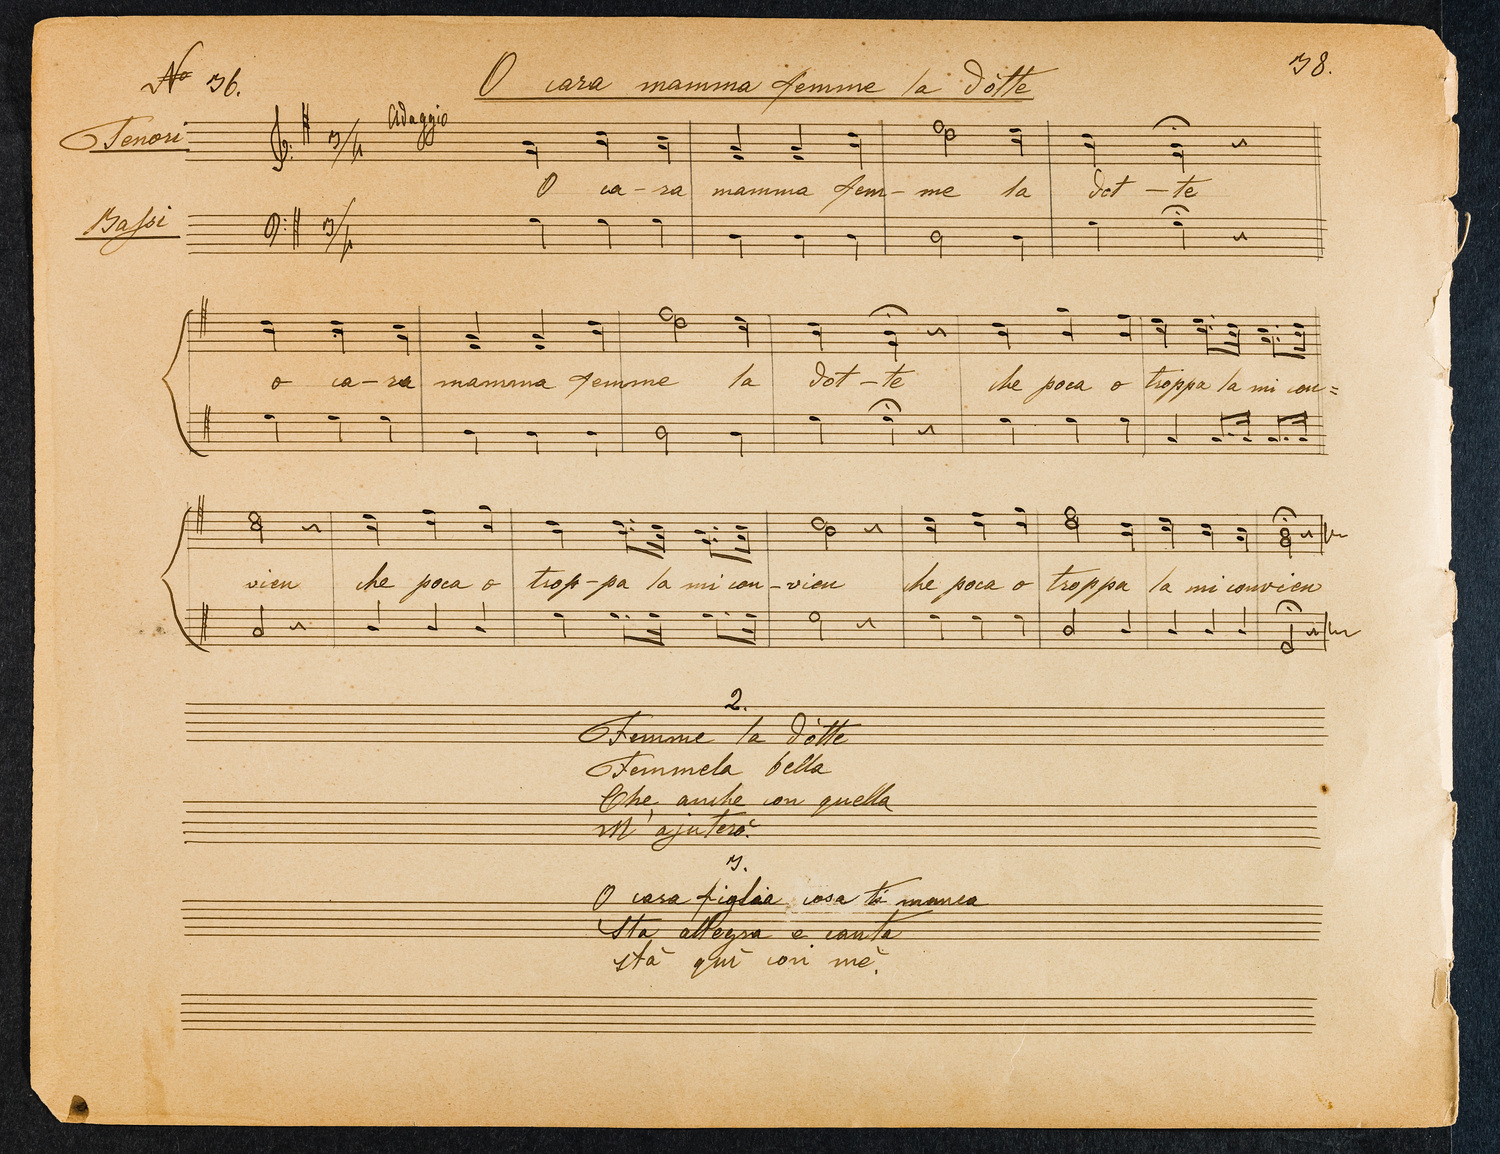 No 36.
O cara mamma femme la dòtte
38.
Adaggio
Tenori
3/4
O ca-ra mamma fem-me la dot-te
Bassi
3/4
o ca-ra mamma femme la dot-te che poca o troppa la mi con=
vien che poca o trop-pa la mi con-vien che poca o troppa la mi convien
2.
Femme la dòtte
Femmela bella
Che anche con quella
M'ajuterò.
3.
O cara figlia cosa ti manca
Sta allegra e canta
stà quì con mè.